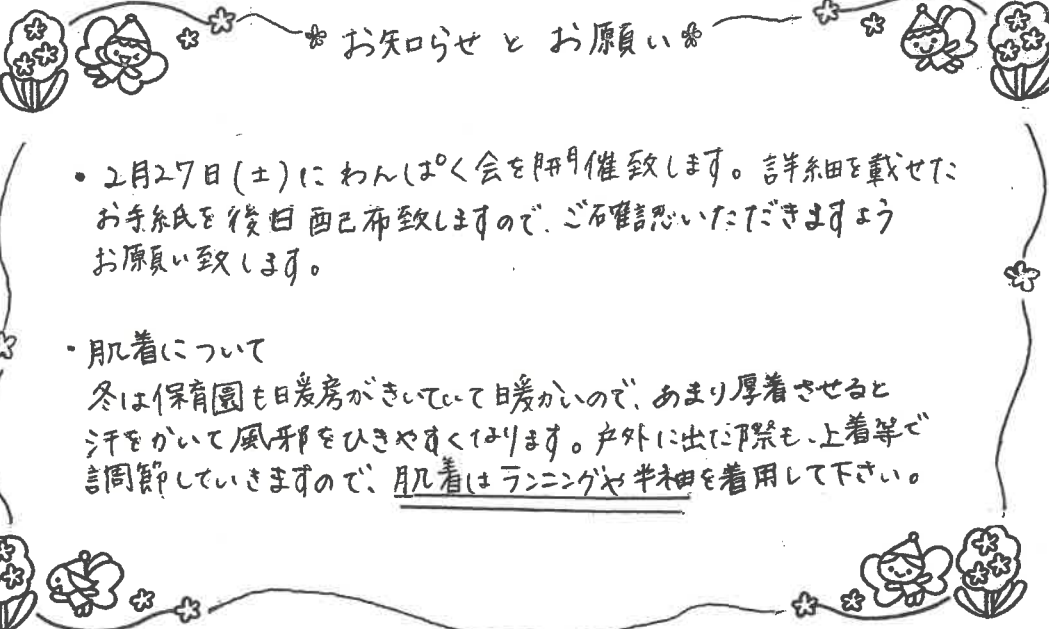 お知らせ と お願い
・2月27日(土)に わんぱく会を開催致します。詳細を載せた
お手紙を後日配布致しますので、ご確認いただきますよう
お願い致します。
・肌着について
冬は保育園も暖房がきいていて暖かいので、あまり厚着させると
汗をかいて風邪をひきやすくなります。戸外に出た際も、上着等で
調節していきますので、肌着はランニングや半袖を着用して下さい。